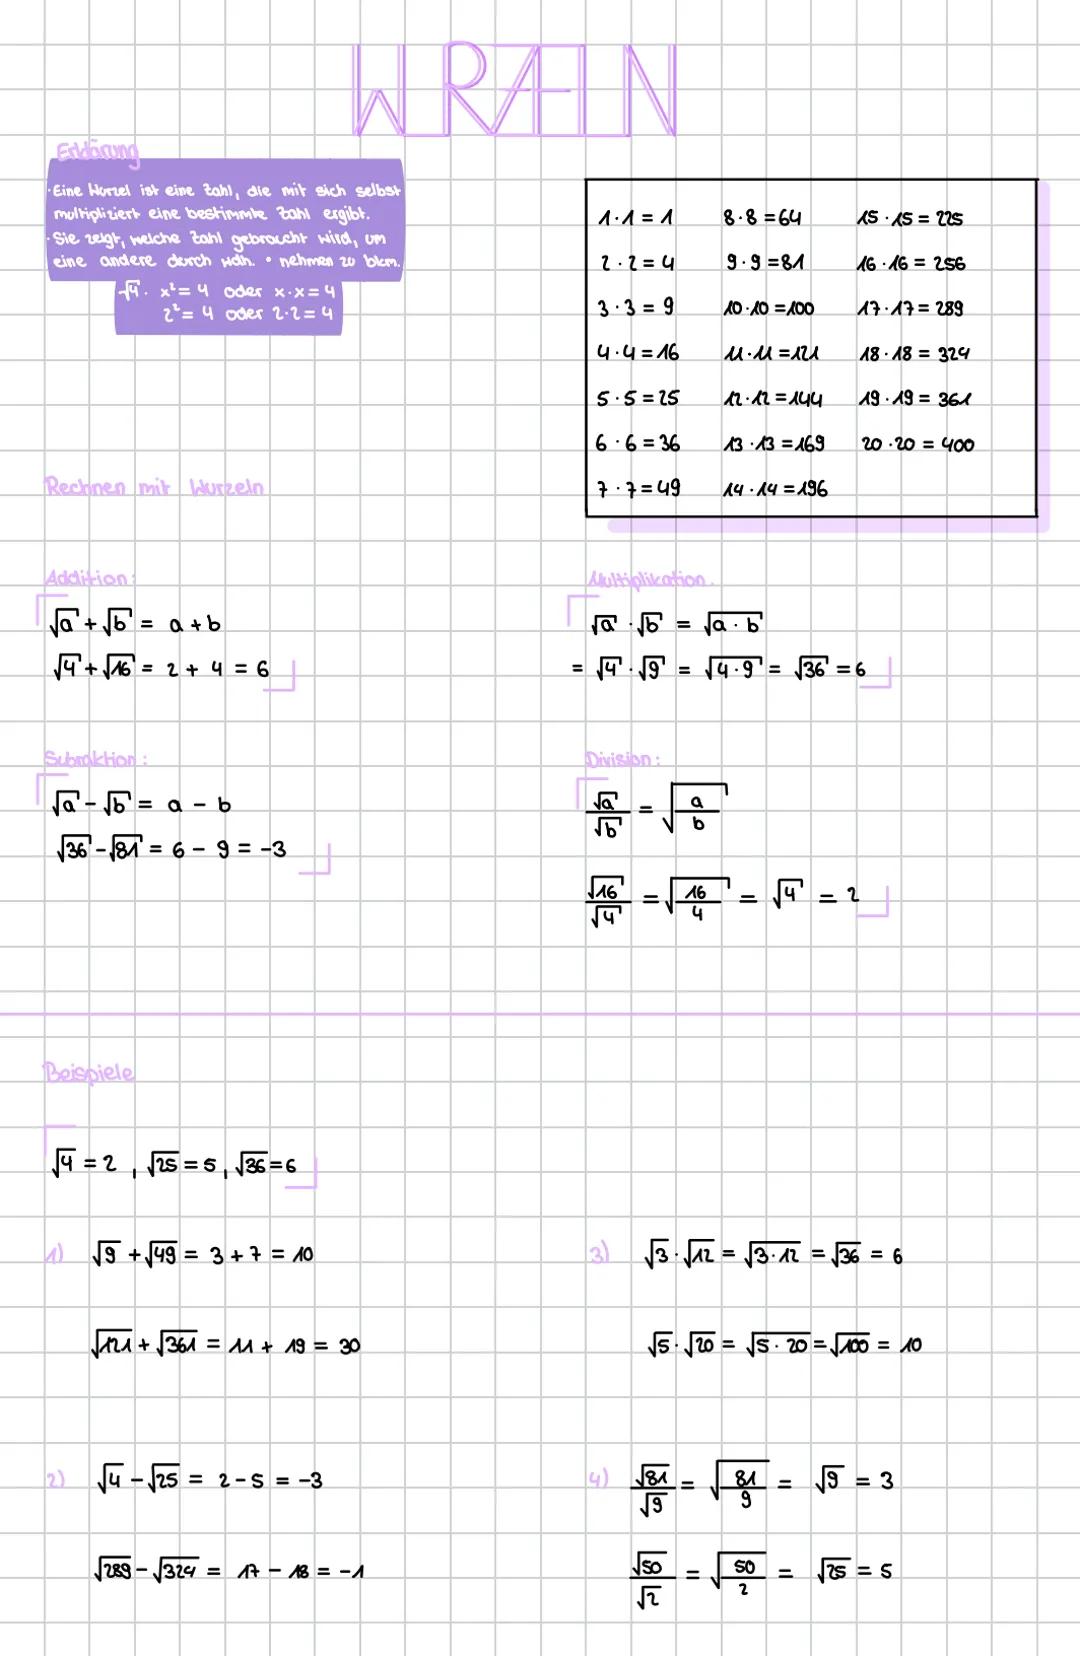 WURZELN
Erklärung
· Eine Wurzel ist eine Zahl, die mit sich selbst
multipliziert eine bestimmte Zahl ergibt.
· Sie zeigt, welche Zahl gebraucht wird, um
eine andere durch wdh. • nehmen zu bkm.
√4 · x² = 4 oder x·x = 4
2² = 4 oder 2·2 = 4
1·1 = 1 8·8 = 64 15·15 = 225
2·2 = 4 9·9 = 81 16·16 = 256
3·3 = 9 10·10 = 100 17·17 = 289
4·4 = 16 11·11 = 121 18·18 = 324
5·5 = 25 12·12 = 144 19·19 = 361
6·6 = 36 13·13 = 169 20·20 = 400
7·7 = 49 14·14 = 196
Rechnen mit Wurzeln
Addition:
√a + √b = a + b
√4 + √16 = 2 + 4 = 6
Multiplikation:
√a · √b = √a·b
= √4 · √9 = √4·9 = √36 = 6
Subraktion:
√a - √b = a - b
√36 - √81 = 6 - 9 = -3
Division:
√a/√b = √a/b
√16/√4 = √16/4 = √4 = 2
Beispiele
√4 = 2, √25 = 5, √36 = 6
1) √9 + √49 = 3 + 7 = 10
√121 + √361 = 11 + 19 = 30
3) √3 · √12 = √3·12 = √36 = 6
√5 · √20 = √5·20 = √100 = 10
2) √4 - √25 = 2 - 5 = -3
√289 - √324 = 17 - 18 = -1
4) √81/√9 = √81/9 = √9 = 3
√50/√2 = √50/2 = √25 = 5